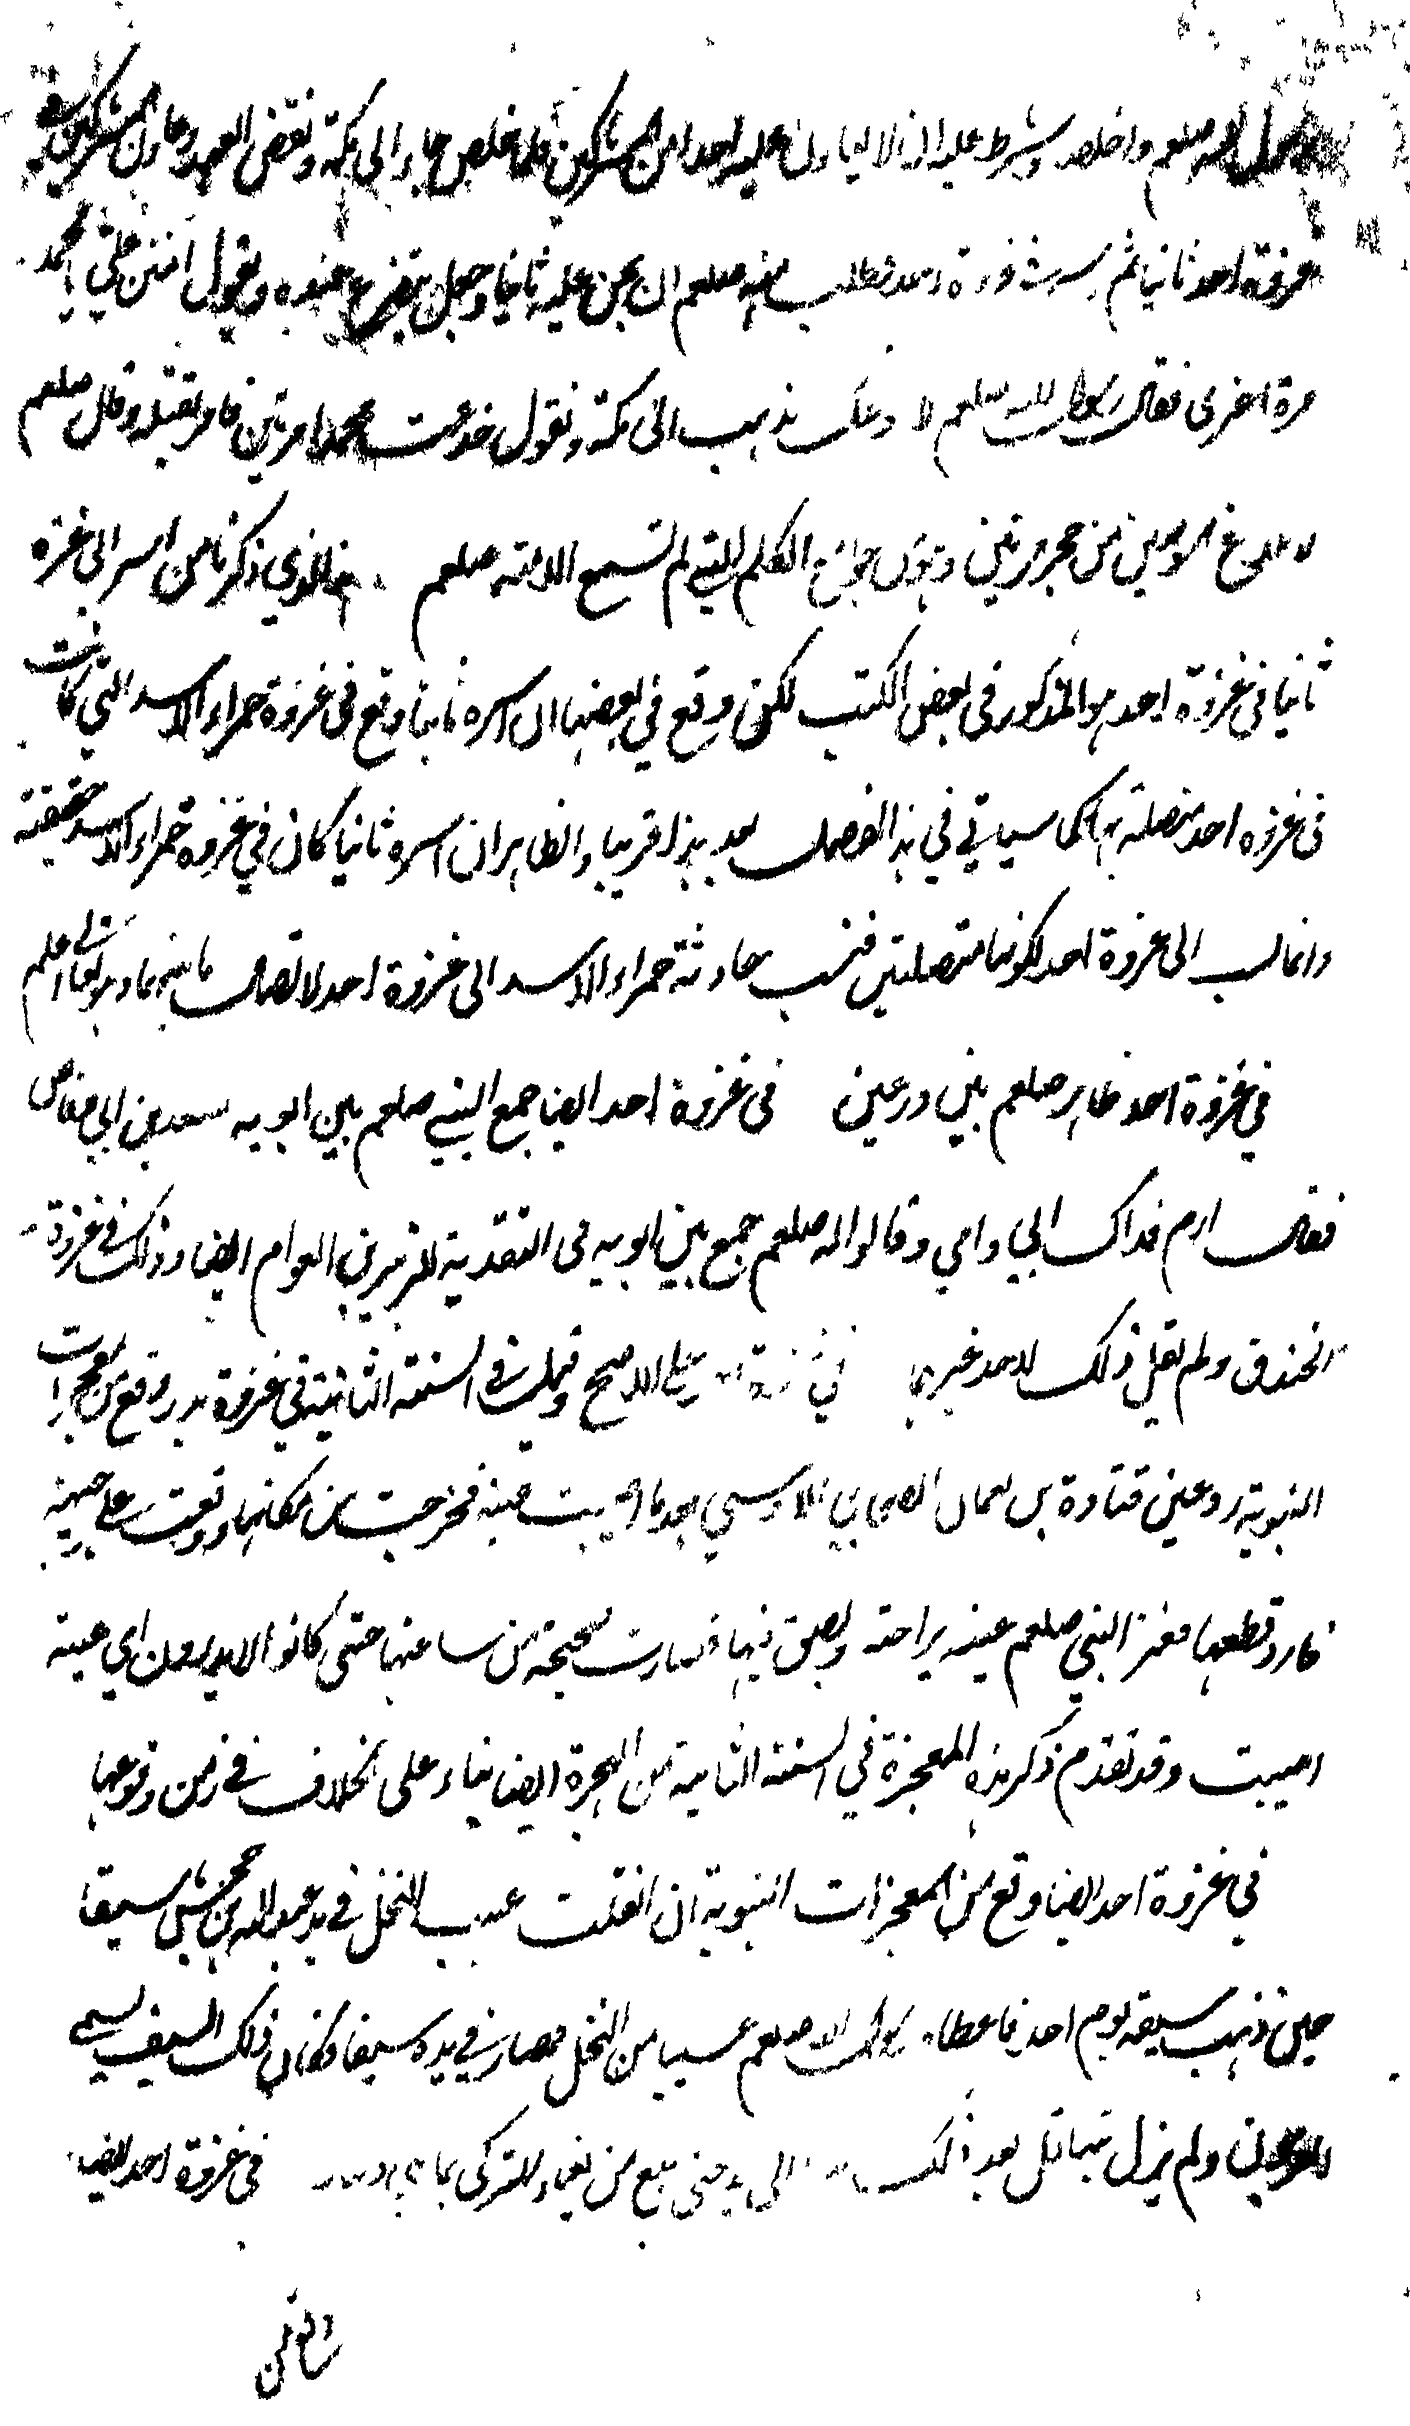 رسول الله صلعم واخلصه وشرط عليه ان لا يعاون عليه احدا من المشركين فلما خلص جاء الى مكة ونقض العهد وعاون المشركين في
غزوة احد ثانيا ثم اسر في غزوة احد فطلب منه صلعم ان يمن عليه ثانيا وجعل يتضرع عنده ويقول امنن علي يا محمد
مرة اخرى فقال رسول الله صلعم لا دعك تذهب الى مكة وتقول خدعت محمدا مرتين فامر بقتله وقال صلعم
لا يلدغ المومن من جحر مرتين وهو من جوامع الكلم التي لم تسمع الا منه صلعم هذا الذي ذكرنا من اسر ابي عزة
ثانيا في غزوة احد هو المذكور في بعض الكتب لكن وقع في بعضها ان اسره ثانيا وقع في غزوة حمراء الاسد التي كانت
في غزوة احد متصلة بها كما سياتي في هذا الفصل بعد هذا قريبا والظاهر ان اسره ثانيا كان في غزوة حمراء الاسد حقيقة
وانما نسب الى غزوة احد لكونهما متصلتين فنسب حادثة حمراء الاسد الى غزوة احد لاتصال ما بينهما وهو تعالى اعلم
في غزوة احد ظاهر صلعم بين درعين في غزوة احد ايضا جمع النبي صلعم بين ابويه لسعد بن ابي وقاص
فقال ارم فداك ابي وامي وقالوا انه صلعم جمع بين ابويه في التفدية للزبير بن العوام ايضا وذلك في غزوة
الخندق ولم يقل ذلك لاحد غيرهما في غزوة احد على الاصح وقيل في السنة الثانية في غزوة بدر وقع من المعجزات
النبوية رد عين قتادة بن نعمان الصحابي الاوسي بعد ما اصيبت عينه فخرجت من مكانها ووقعت على جبهته
فارادوا قطعها فغمز النبي صلعم عينه براحته وبصق فيها فصارت صحيحة من ساعتها حتى كانوا لا يدرون اي عينه
اصيبت وقد تقدم ذكر هذه المعجزة في السنة الثانية من الهجرة ايضا بناء على الخلاف في زمن وقوعها
في غزوة احد ايضا وقع من المعجزات النبوية ان انقلب عسيب النخل في يد عبد الله بن جحش سيفا
حين ذهب سيفه يوم احد فاعطاه رسول الله صلعم عسيبا من النخل فصار في يده سيفا وكان ذلك السيف يسمى
العرجون ولم يزل يتناقل بعد ذلك الى يد حتى بيع من بغاء التركي بمائتي دينار في غزوة احد ايضا